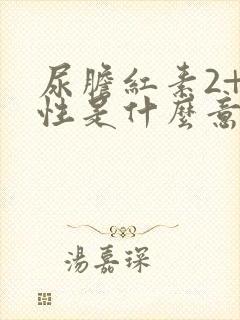 尿膽紅素2+
性是什麼意
湯嘉琛